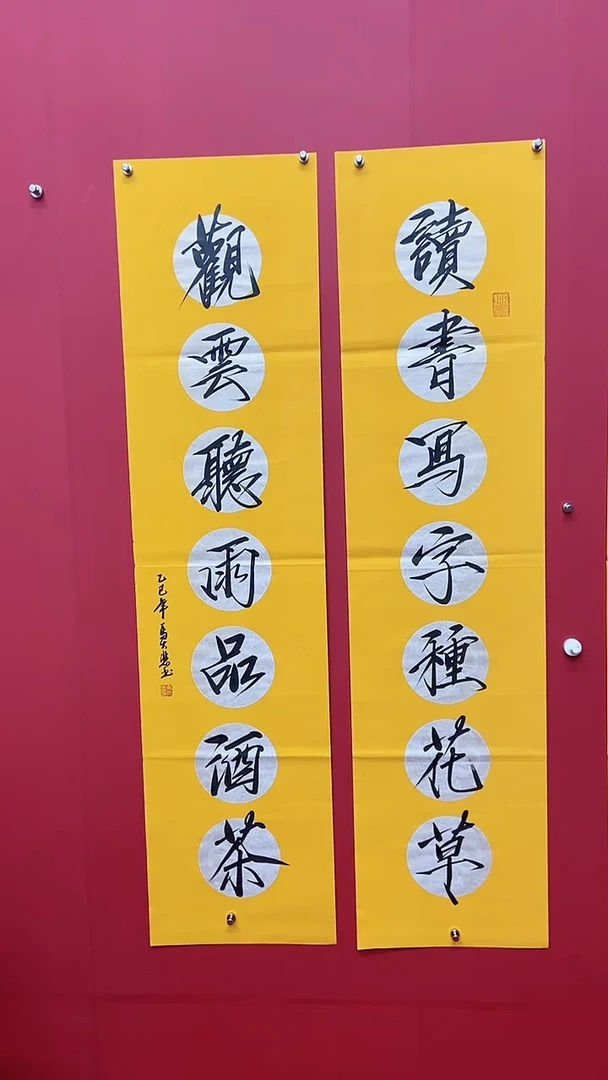 讀書写字種花草
觀雲聽雨品酒茶
乙巳年